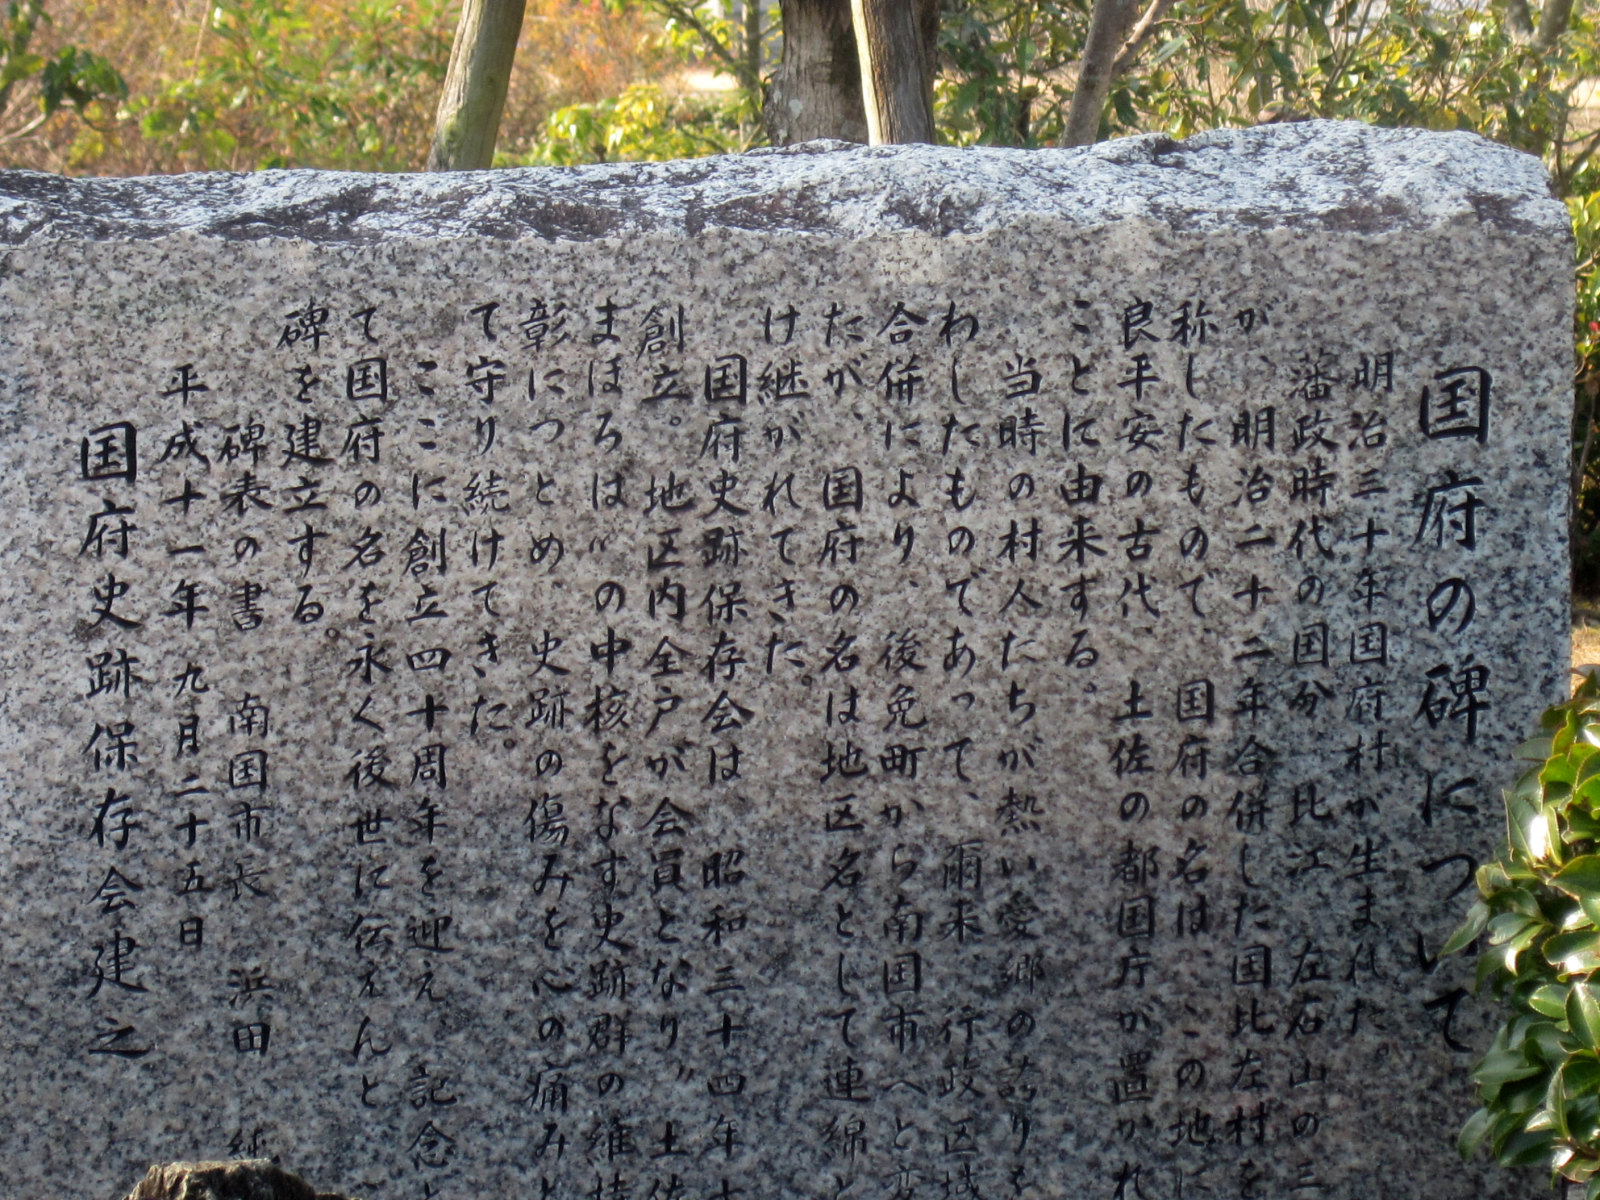 国府の碑について
明治三十年国府村が生まれた。
藩政時代の国分、比江、左右山の三
が、明治二十二年合併した国比左村を
称したもので、国府の名は、この地に
良平安の古代、土佐の都国庁が置かれ
ことに由来する。
当時の村人たちが熱い愛郷の誇りを
わしたものであって、爾来、行政区域
合併により、後免町から南国市へと変
たが、国府の名は地区名として連綿と
け継がれてきた。
国府史跡保存会は、昭和三十四年十
創立。地区内全戸が会員となり〃土佐
まほろば〃の中核をなす史跡群の維持
彰につとめ、史跡の傷みを心の痛みと
て守り続けてきた。
ここに創立四十周年を迎え、記念と
て国府の名を永く後世に伝えんと
碑を建立する。
平成十一年 九月二十五日
碑表の書 南国市長 浜田 純
国府史跡保存会建之